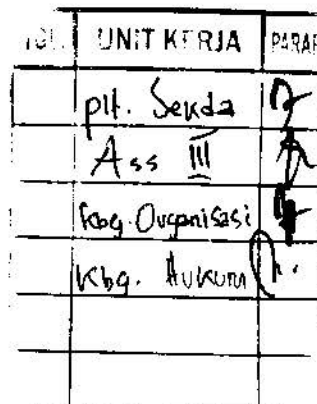 UNIT KERJA PARAF
plt. Sekda
Ass III
Kbg. Organisasi
Kbg. Hukum